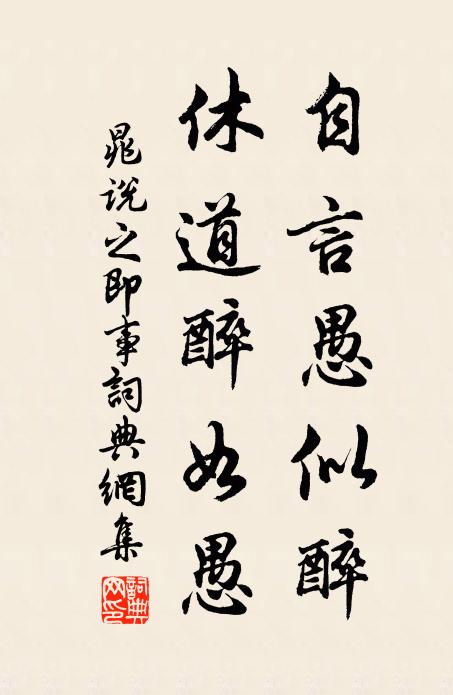 自言愚似醉
休道醉如愚
晁說之即事詞典網集
詞典網印